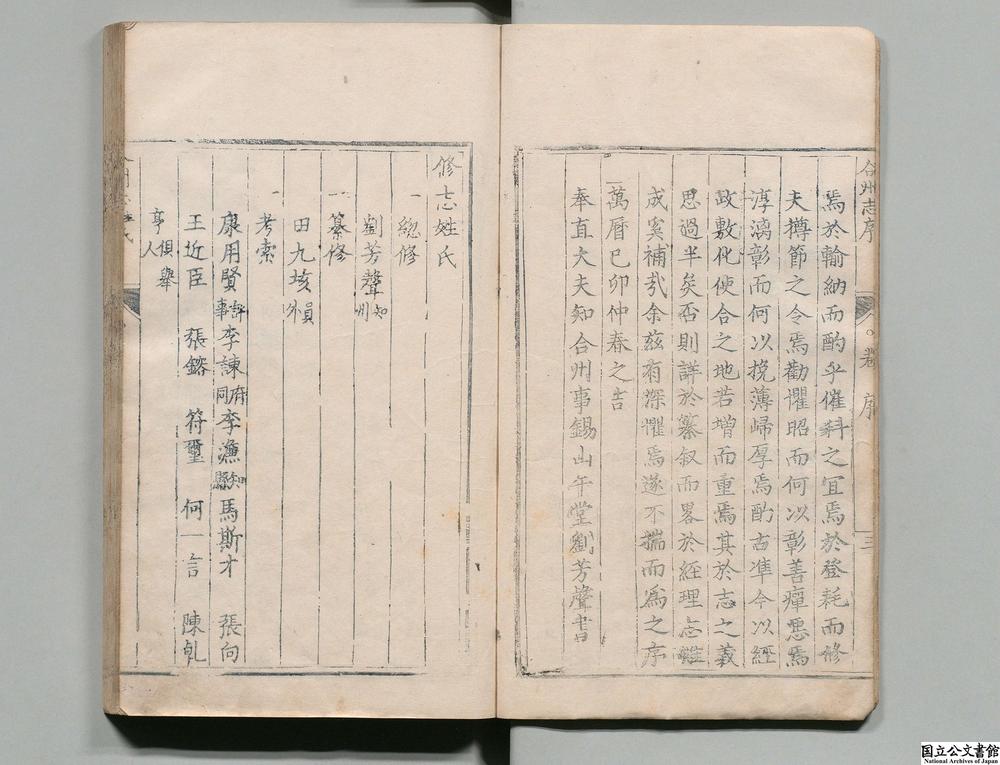 合州志序
卷 序 三
焉於輸納而酌乎催科之宜焉於登耗而修
夫撙節之令焉勸懼昭而何以彰善癉惡焉
淳漓彰而何以挽薄歸厚焉酌古準今以經
政敷化使合之地若增而重焉其於志之義
思過半矣否則詳於纂叙而畧於經理志雖
成奚補哉余兹有深懼焉遂不揣而爲之序
萬曆己卯仲春之吉
奉直大夫知合州事錫山午堂劉芳聲書
修志姓氏
一總修
劉芳聲知州
一纂修
田九垓員外
一考索
康用賢評事 李諫府同 李漁知縣 馬斯才 張向
王近臣 張鎔 符璽 何一言 陳乹
亨俱舉人
国立公文書館
National Archives of Japan